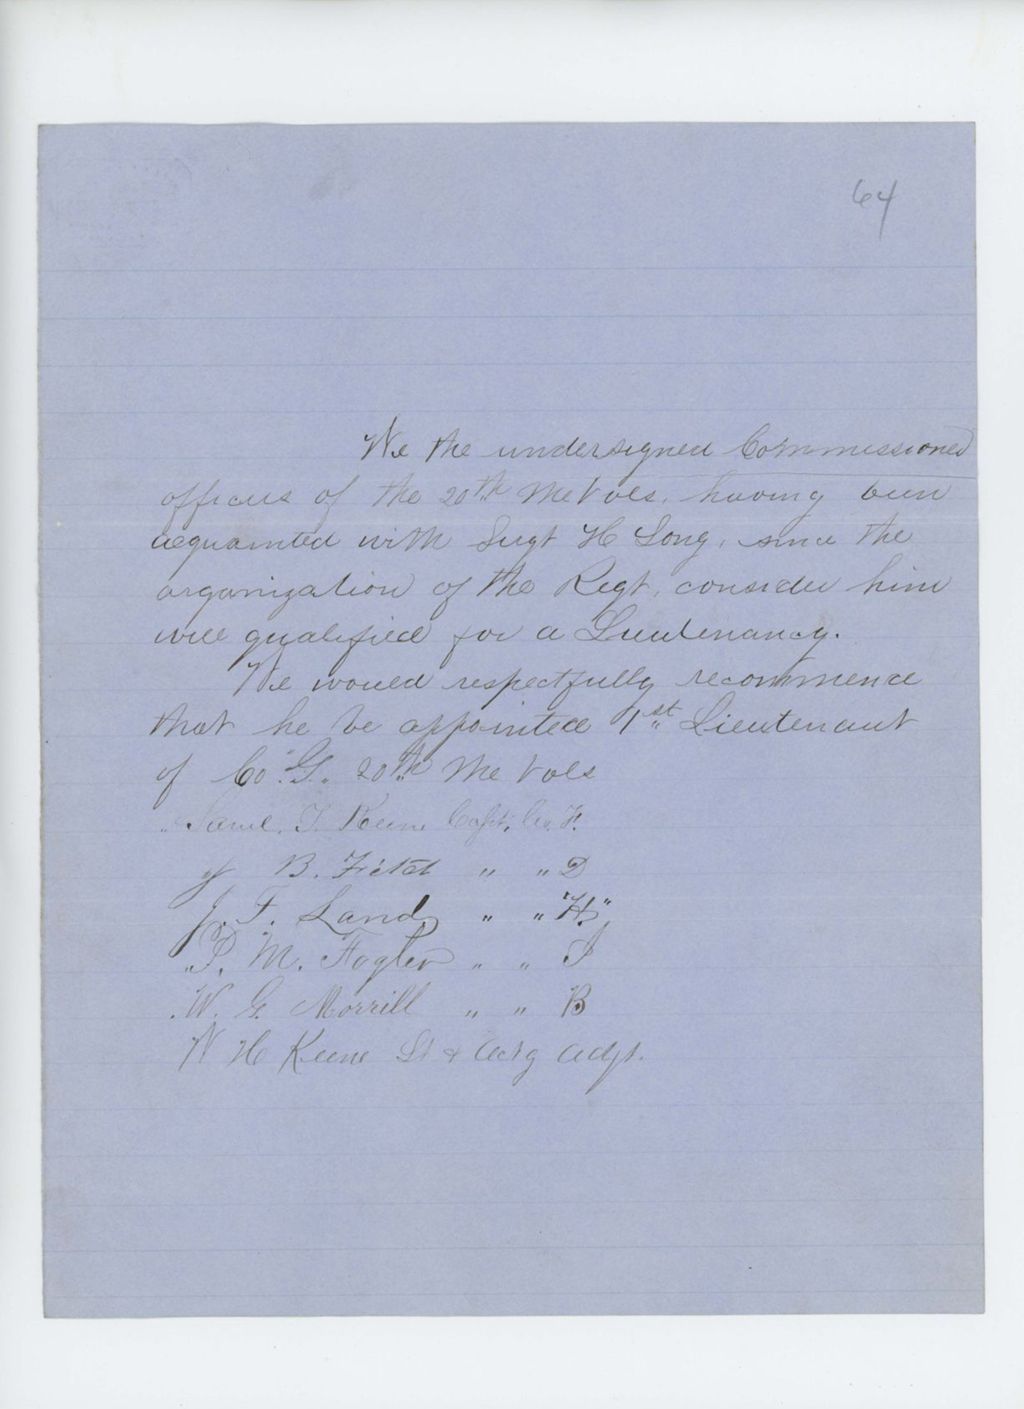 64
We the undersigned Commissioned
officers of the 20th Me Vols. having been
acquainted with Sergt H Long, since the
organization of the Regt, consider him
well qualified for a Lieutenancy.
We would respectfully recommend
that he be appointed 1st Lieutenant
of Co "G" 20th Me Vols
Saml. T. Keene Capt. Co. F.
B. Fitch " " D
J. F. Land " " "H"
P. M. Fogler " " I
W. G. Morrill " " B
W H Keene Lt & Actg Adjt.